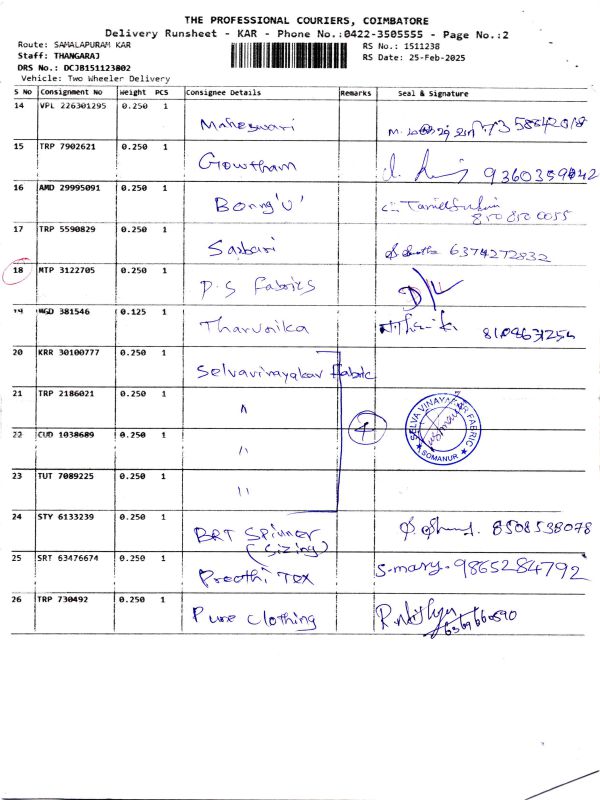 THE PROFESSIONAL COURIERS, COIMBATORE
Delivery Runsheet - KAR - Phone No.:0422-3505555 - Page No.:2
Route: SAMALAPURAM KAR
RS No.: 1511238
Staff: THANGARAJ
RS Date: 25-Feb-2025
DRS No.: DCJB151123802
Vehicle: Two Wheeler Delivery
S No Consignment No Weight PCS Consignee Details Remarks Seal & Signature
14 VPL 226301295 0.250 1 Maheswari
15 TRP 7902621 0.250 1 Gowtham
16 AMD 29995091 0.250 1 Bonng'U'
850 850 0055
17 TRP 5590829 0.250 1 Sasbari 6374272832
18 MTP 3122705 0.250 1 P.S Fabrics D/L
19 WGD 381546 0.125 1 Tharunika
20 KRR 30100777 0.250 1 Selvavinayakar Fabric
21 TRP 2186021 0.250 1 "
4
SELVA VINAYAKAR FABRIC
★ SOMANUR ★
22 CUD 1038689 0.250 1 "
23 TUT 7089225 0.250 1 "
24 STY 6133239 0.250 1 BRT Spinner 8508538078
(Sizing)
25 SRT 63476674 0.250 1 Preethi Tex S.mary. 9865284792
26 TRP 730492 0.250 1 Pure Clothing